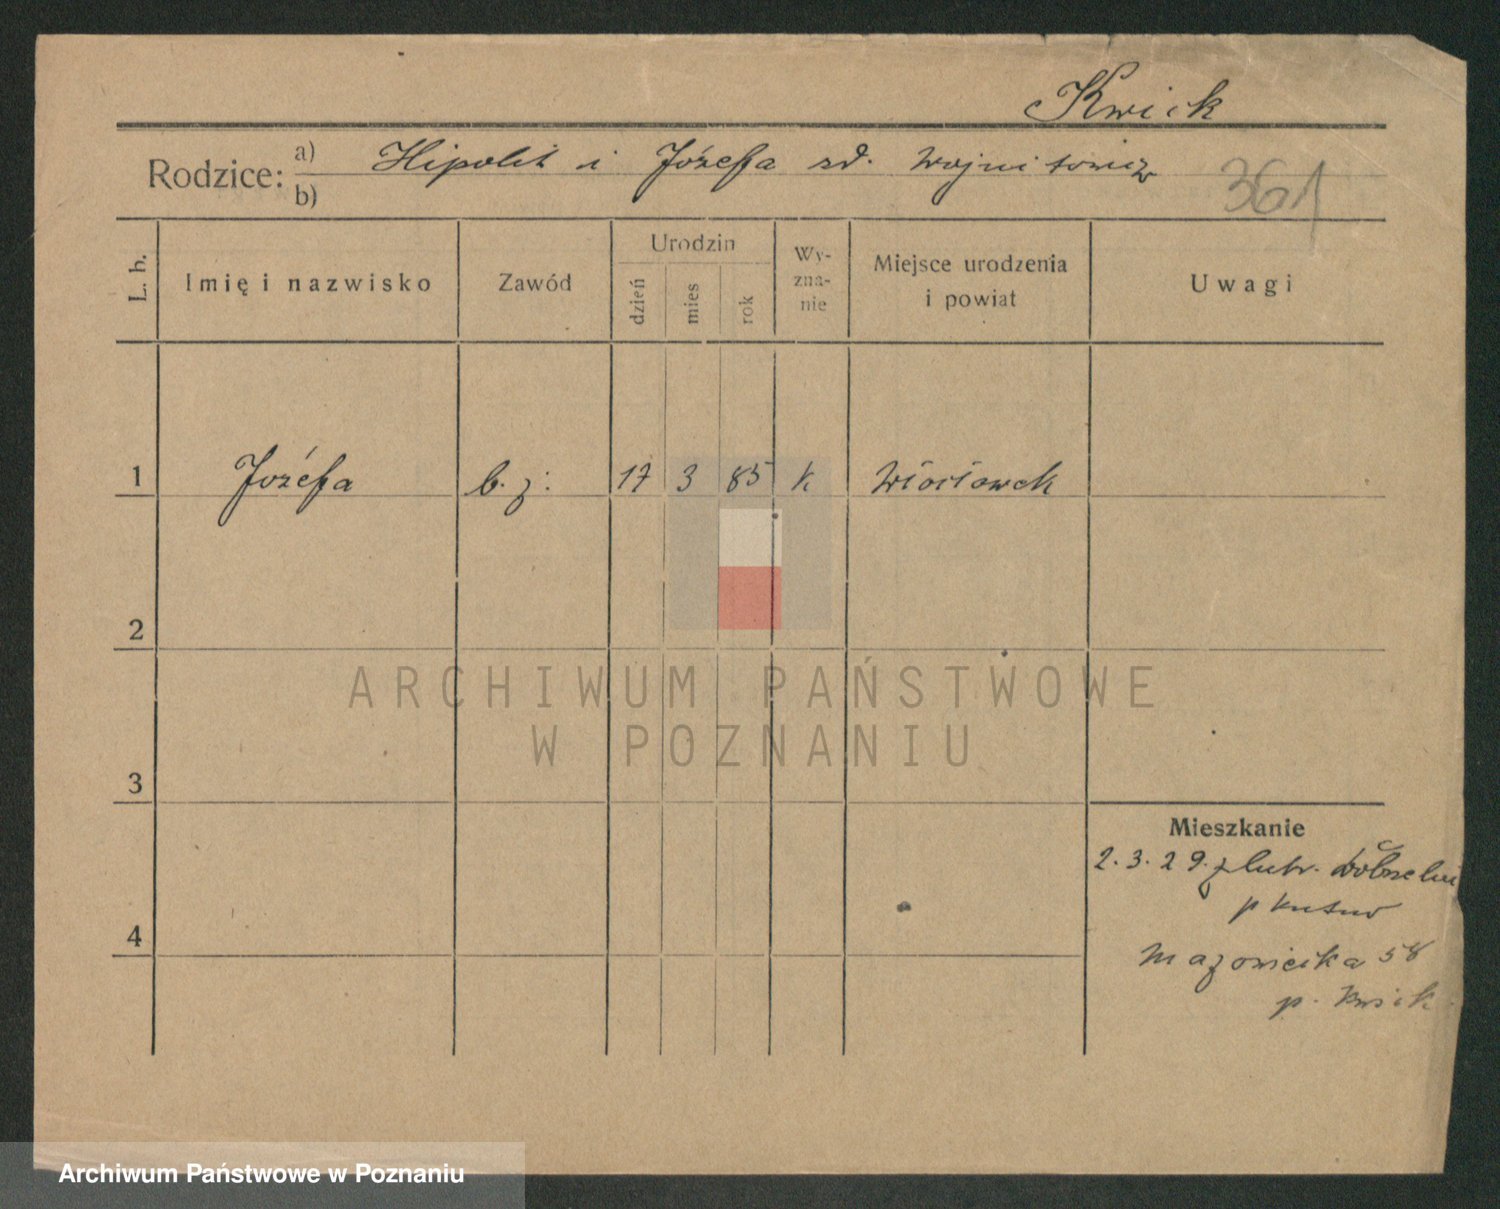 Kwiek
Rodzice: a) Hipolit i Józefa zd.
b)
361
L. b.
Imię i nazwisko
Zawód
Urodzin
dzień
mies
rok
Wy-
zna-
nie
Miejsce urodzenia
i powiat
Uwagi
1 Józefa b. z: 17 3 85 k Włocławek
2
3
4
Mieszkanie
2.3.29. z
p Kutno
Mazowiecka 58
p. Kwiek
ARCHIWUM PAŃSTWOWE
W POZNANIU
Archiwum Państwowe w Poznaniu